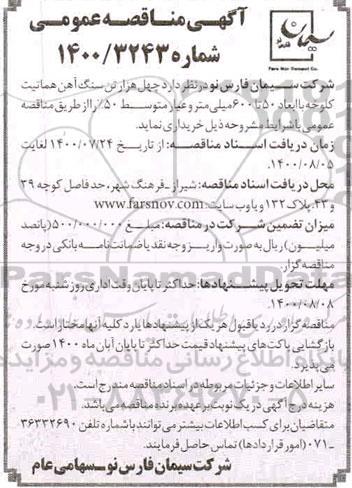 آگهی مناقصه عمومی
شماره ۱۴۰۰/۳۲۴۳
Fars Nov Cement Co.
شرکت سیمان فارس نو در نظر دارد چهل هزار تن سنگ آهن هماتیت
کلوخه با ابعاد ۵۰ تا ۶۰۰ میلی متر و عیار متوسط ۵۰٪ را از طریق مناقصه
عمومی با شرایط مشروحه ذیل خریداری نماید.
زمان دریافت اسناد مناقصه: از تاریخ ۱۴۰۰/۰۷/۲۴ لغایت
۱۴۰۰/۰۸/۰۵.
محل دریافت اسناد مناقصه: شیراز ـ فرهنگ شهر، حد فاصل کوچه ۳۹
و ۴۳، پلاک ۱۳۲ و یا وب سایت: www.farsnov.com
میزان تضمین شرکت در مناقصه: مبلغ ۵۰۰/۰۰۰/۰۰۰ (پانصد
میلیون) ریال به صورت واریز وجه نقد یا ضمانت نامه بانکی در وجه
مناقصه گزار.
مهلت تحویل پیشنهادها: حداکثر تا پایان وقت اداری روز شنبه مورخ
۱۴۰۰/۰۸/۰۸.
مناقصه گزار در رد یا قبول هر یک از پیشنهادها یا رد کلیه آنها مختار است.
بازگشایی پاکت های پیشنهاد قیمت حداکثر تا پایان آبان ماه ۱۴۰۰ صورت
می پذیرد.
سایر اطلاعات و جزئیات مربوطه در اسناد مناقصه مندرج است.
هزینه درج آگهی در یک نوبت بر عهده برنده مناقصه می باشد.
متقاضیان برای کسب اطلاعات بیشتر می توانند با شماره تلفن ۳۶۳۳۲۶۹۰
ـ۰۷۱ (امور قراردادها) تماس حاصل فرمایند.
شرکت سیمان فارس نو ـ سهامی عام